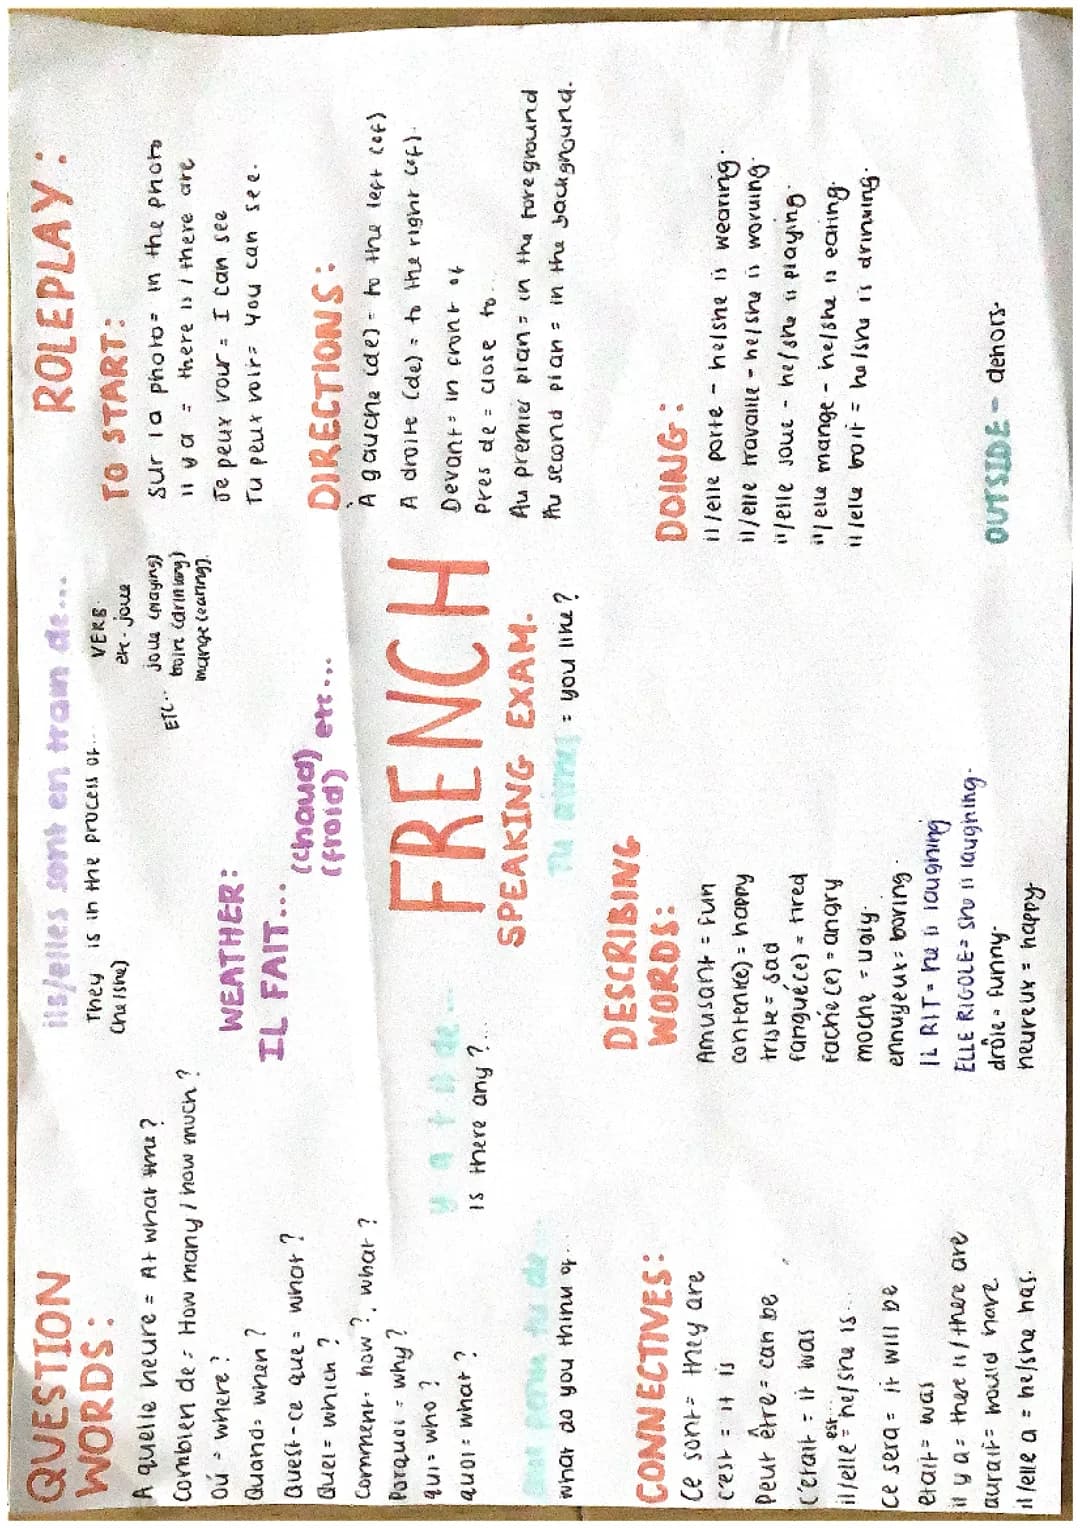 QUESTION
WORDS:
A quelle heure = At what time?
Combien de = How many / how much?
Oú = where?
Quand = when?
Quest-ce que = what?
Quel = which?
Comment = how?, what?
Porquoi = why?
qui = who?
quoi = what?
what do you think of...
CONNECTIVES:
Ce sont = they are
c'est = it is
Peut être = can be
C'etait = it was
est...
il/elle = he/she is...
Ce sera = it will be
etait = was
il y a = there is / there are
aurait = would have
il/elle a = he/she has.
ils/elles sont en train de...
They is in the process of...
(he/she)
VERB.
etc. joue
ETC.. joue (playing)
boire (drinking)
mange (earing).
WEATHER:
IL FAIT... (chaud) etc...
(froid)
y a t il de...
Is there any?...
FRENCH
SPEAKING EXAM.
Tu aimes = you like?
DESCRIBING
WORDS:
Amusant = fun
content(e) = happy
triste = sad
fatigué(e) = tired
faché(e) = angry
moche = ugly.
ennuyeux = boring.
IL RIT = he is laughing
ELLE RIGOLE = she is laughing.
drôle = funny.
heureux = happy
ROLEPLAY:
TO START:
Sur la photo = in the photo
il y a = there is / there are
Je peux voir = I can see
Tu peux voir = You can see.
DIRECTIONS:
À gauche (de) = to the left (of)
A droite (de) = to the right (of).
Devant = in front of
Pres de = close to...
Au premier plan = in the foreground
Au second plan = in the background.
DOING:
il/elle porte - he/she is wearing.
il/elle travaille - he/she is working.
il/elle joue - he/she is playing.
il/elle mange - he/she is eating.
il/elle boit = he/she is drinking.
OUTSIDE - dehors.